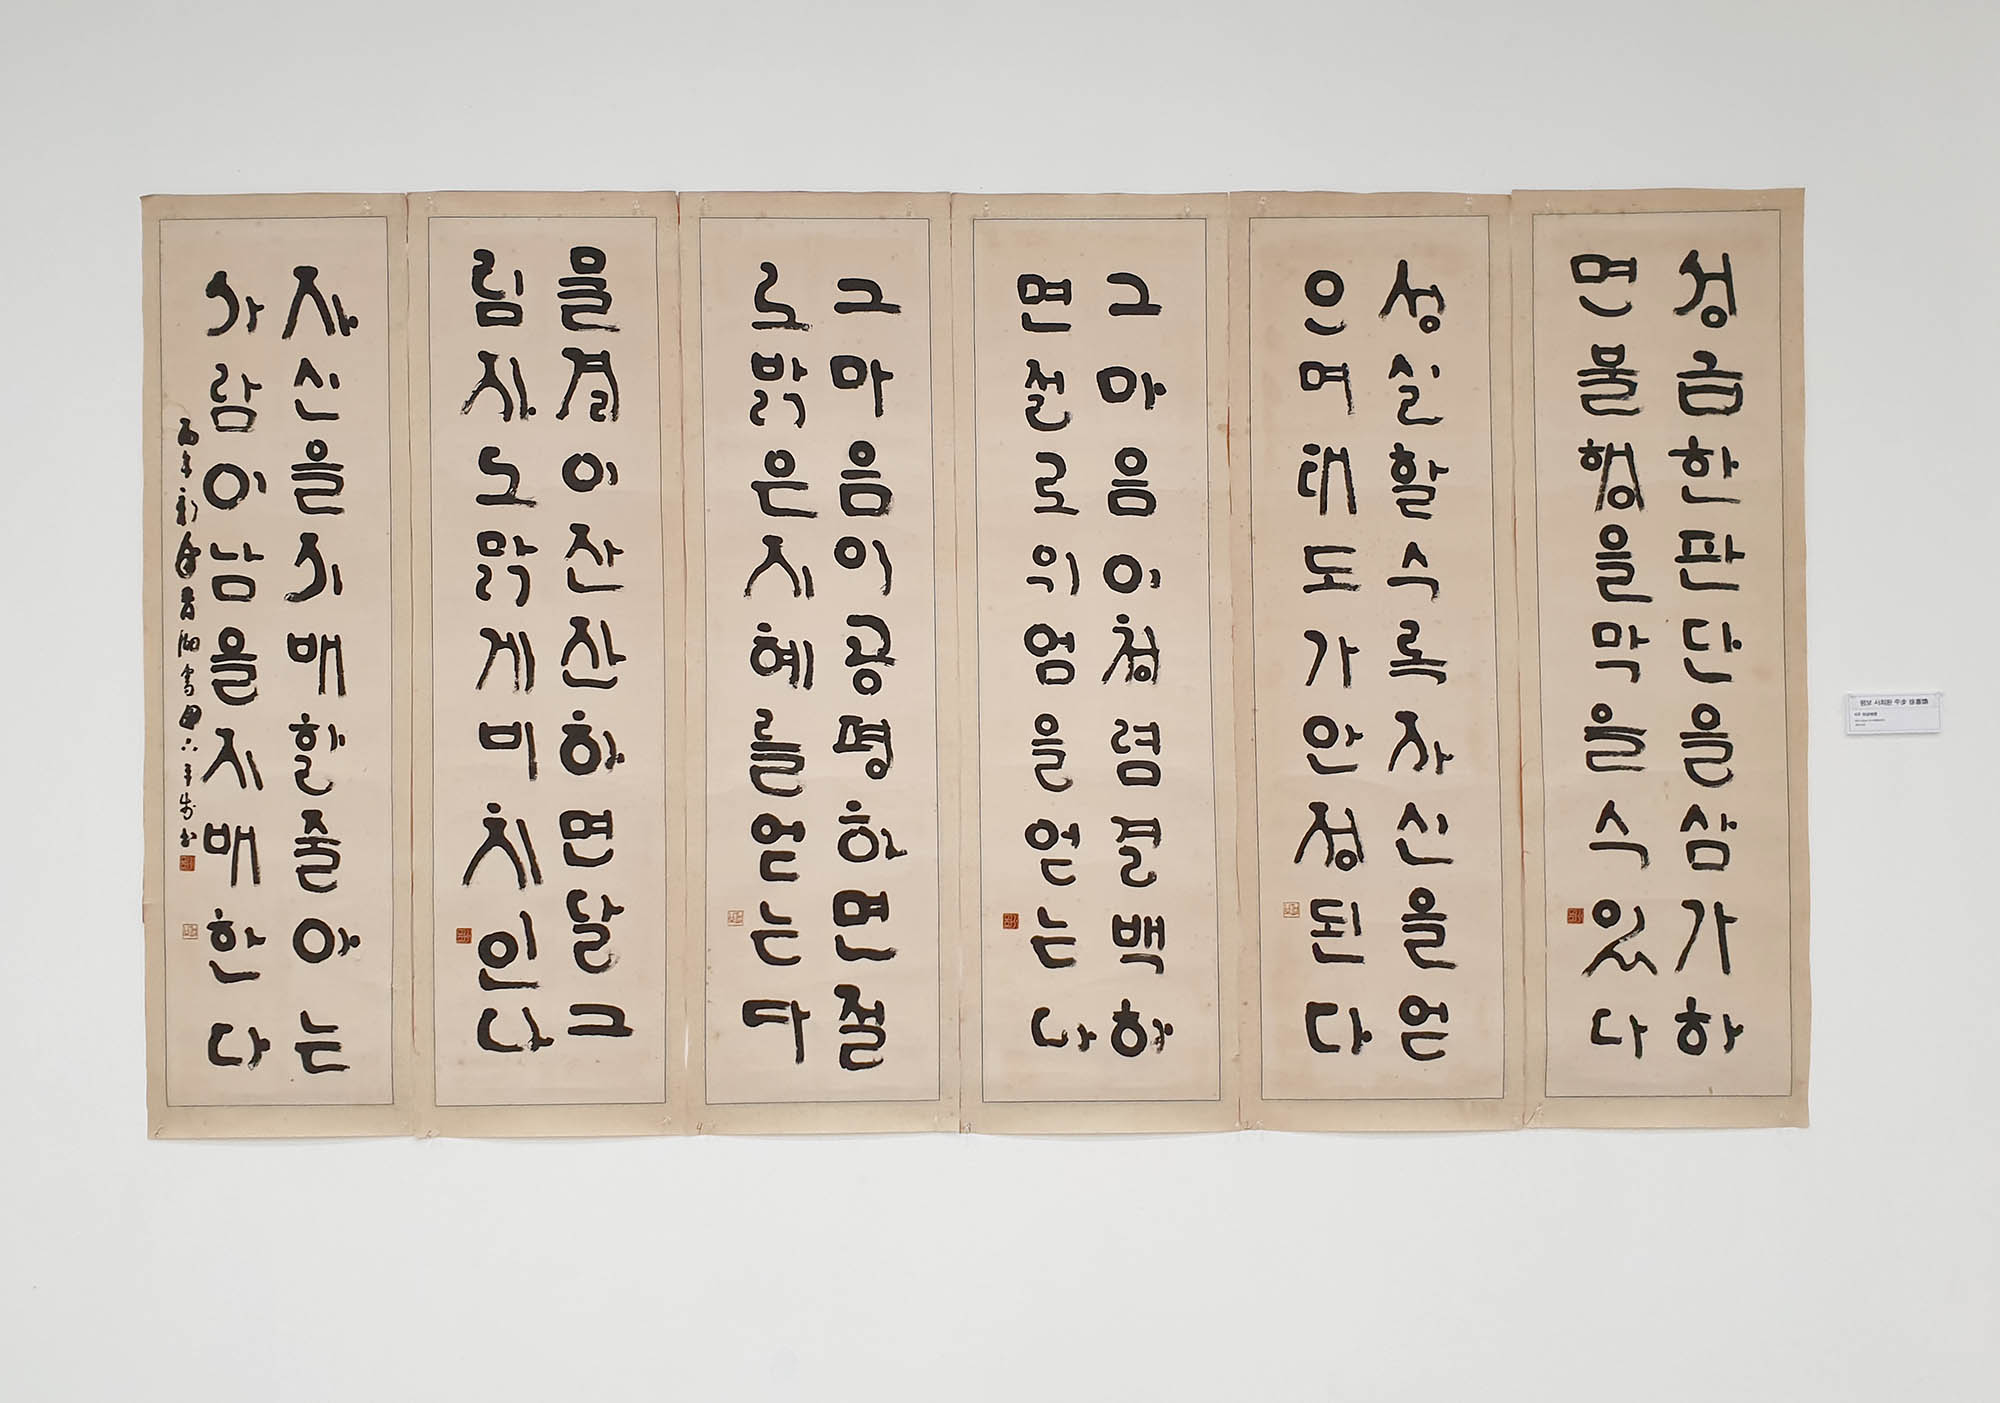 성급한판단을삼가하
면불행을막을수있다
성실할수록자신을얻
으며태도가안정된다
그마음이청렴결백하
면절로위엄을얻는다
그마음이공평하면절
로맑은지혜를얻는다
물결이잔잔하면달그
림자도맑게비치인다
자신을지배할줄아는
사람이남을지배한다
평보 서희환 平步 徐喜煥